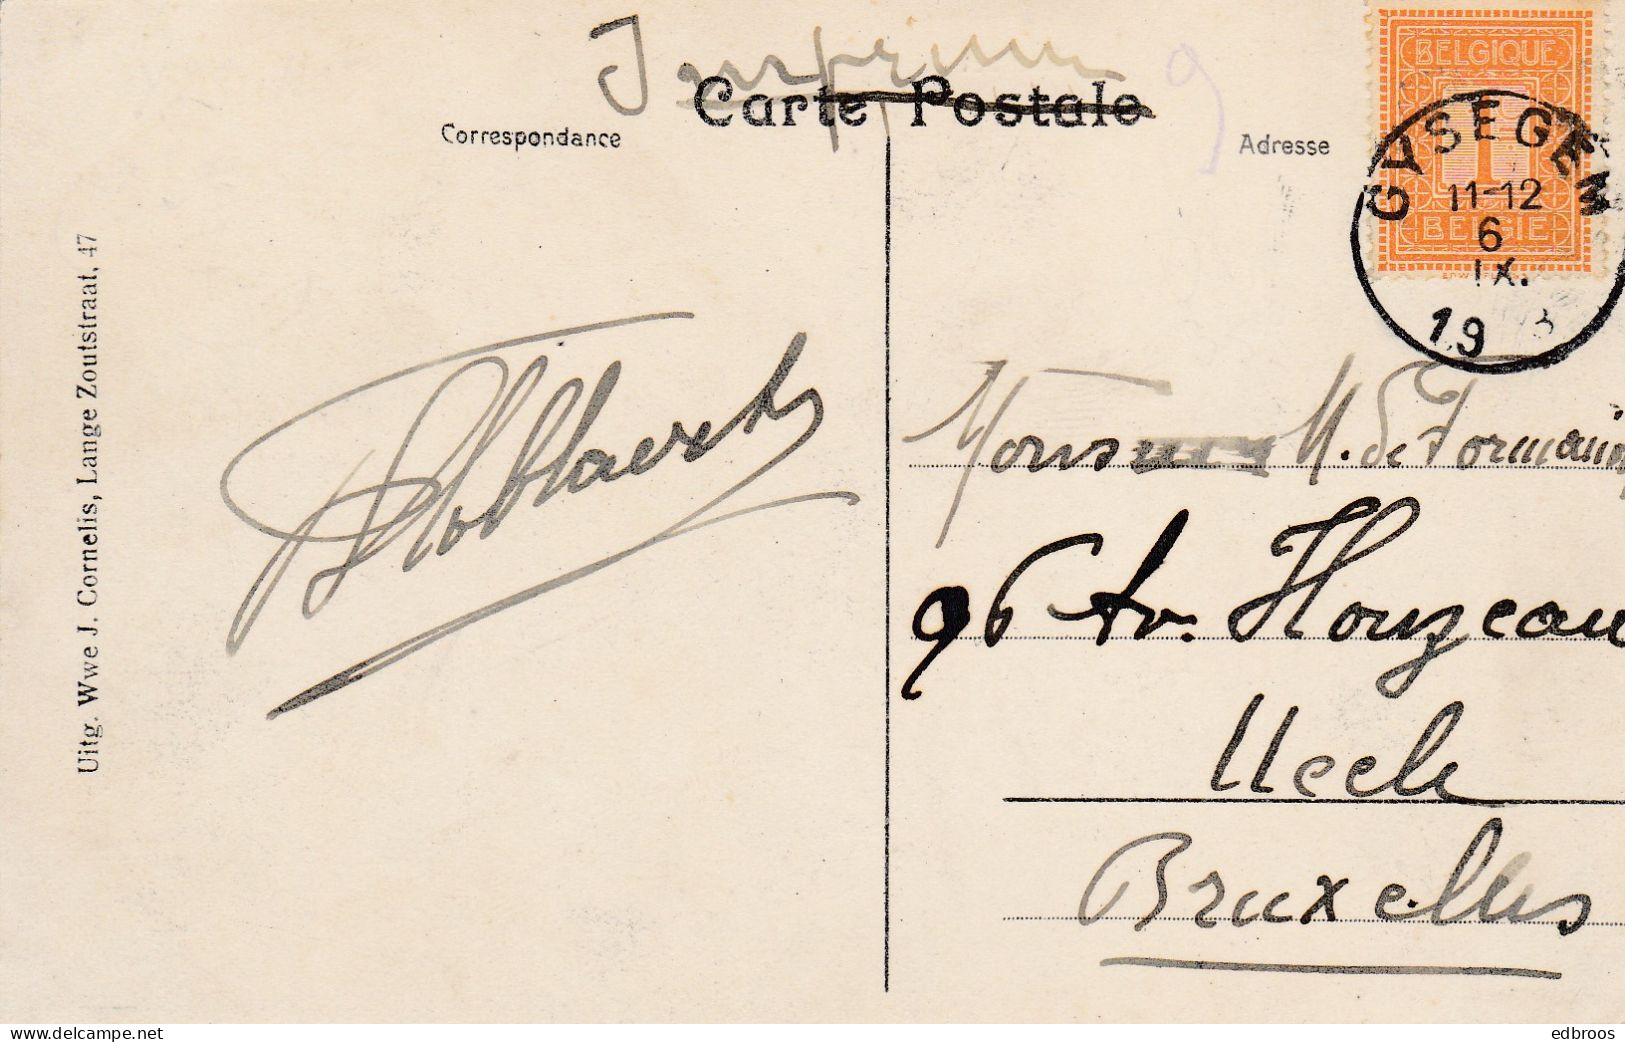 Imprimé
Carte Postale
Correspondance
Adresse
BELGIQUE
1
BELGIË
GYSEGEM
11-12
6
IX.
19 3
Uitg. Wwe J. Cornelis, Lange Zoutstraat, 47
Monsieur M. De
96 Av. Houzeau
Uccle
Bruxelles
delcampe.net
edbroos